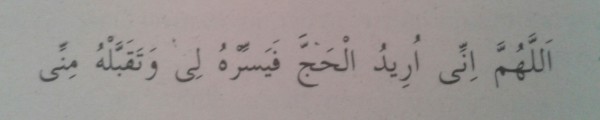 اَللَّهُمَّ اِنِّى اُرِيدُ الْحَجَّ فَيَسِّرْهُ لِى وَتَقَبَّلْهُ مِنِّى